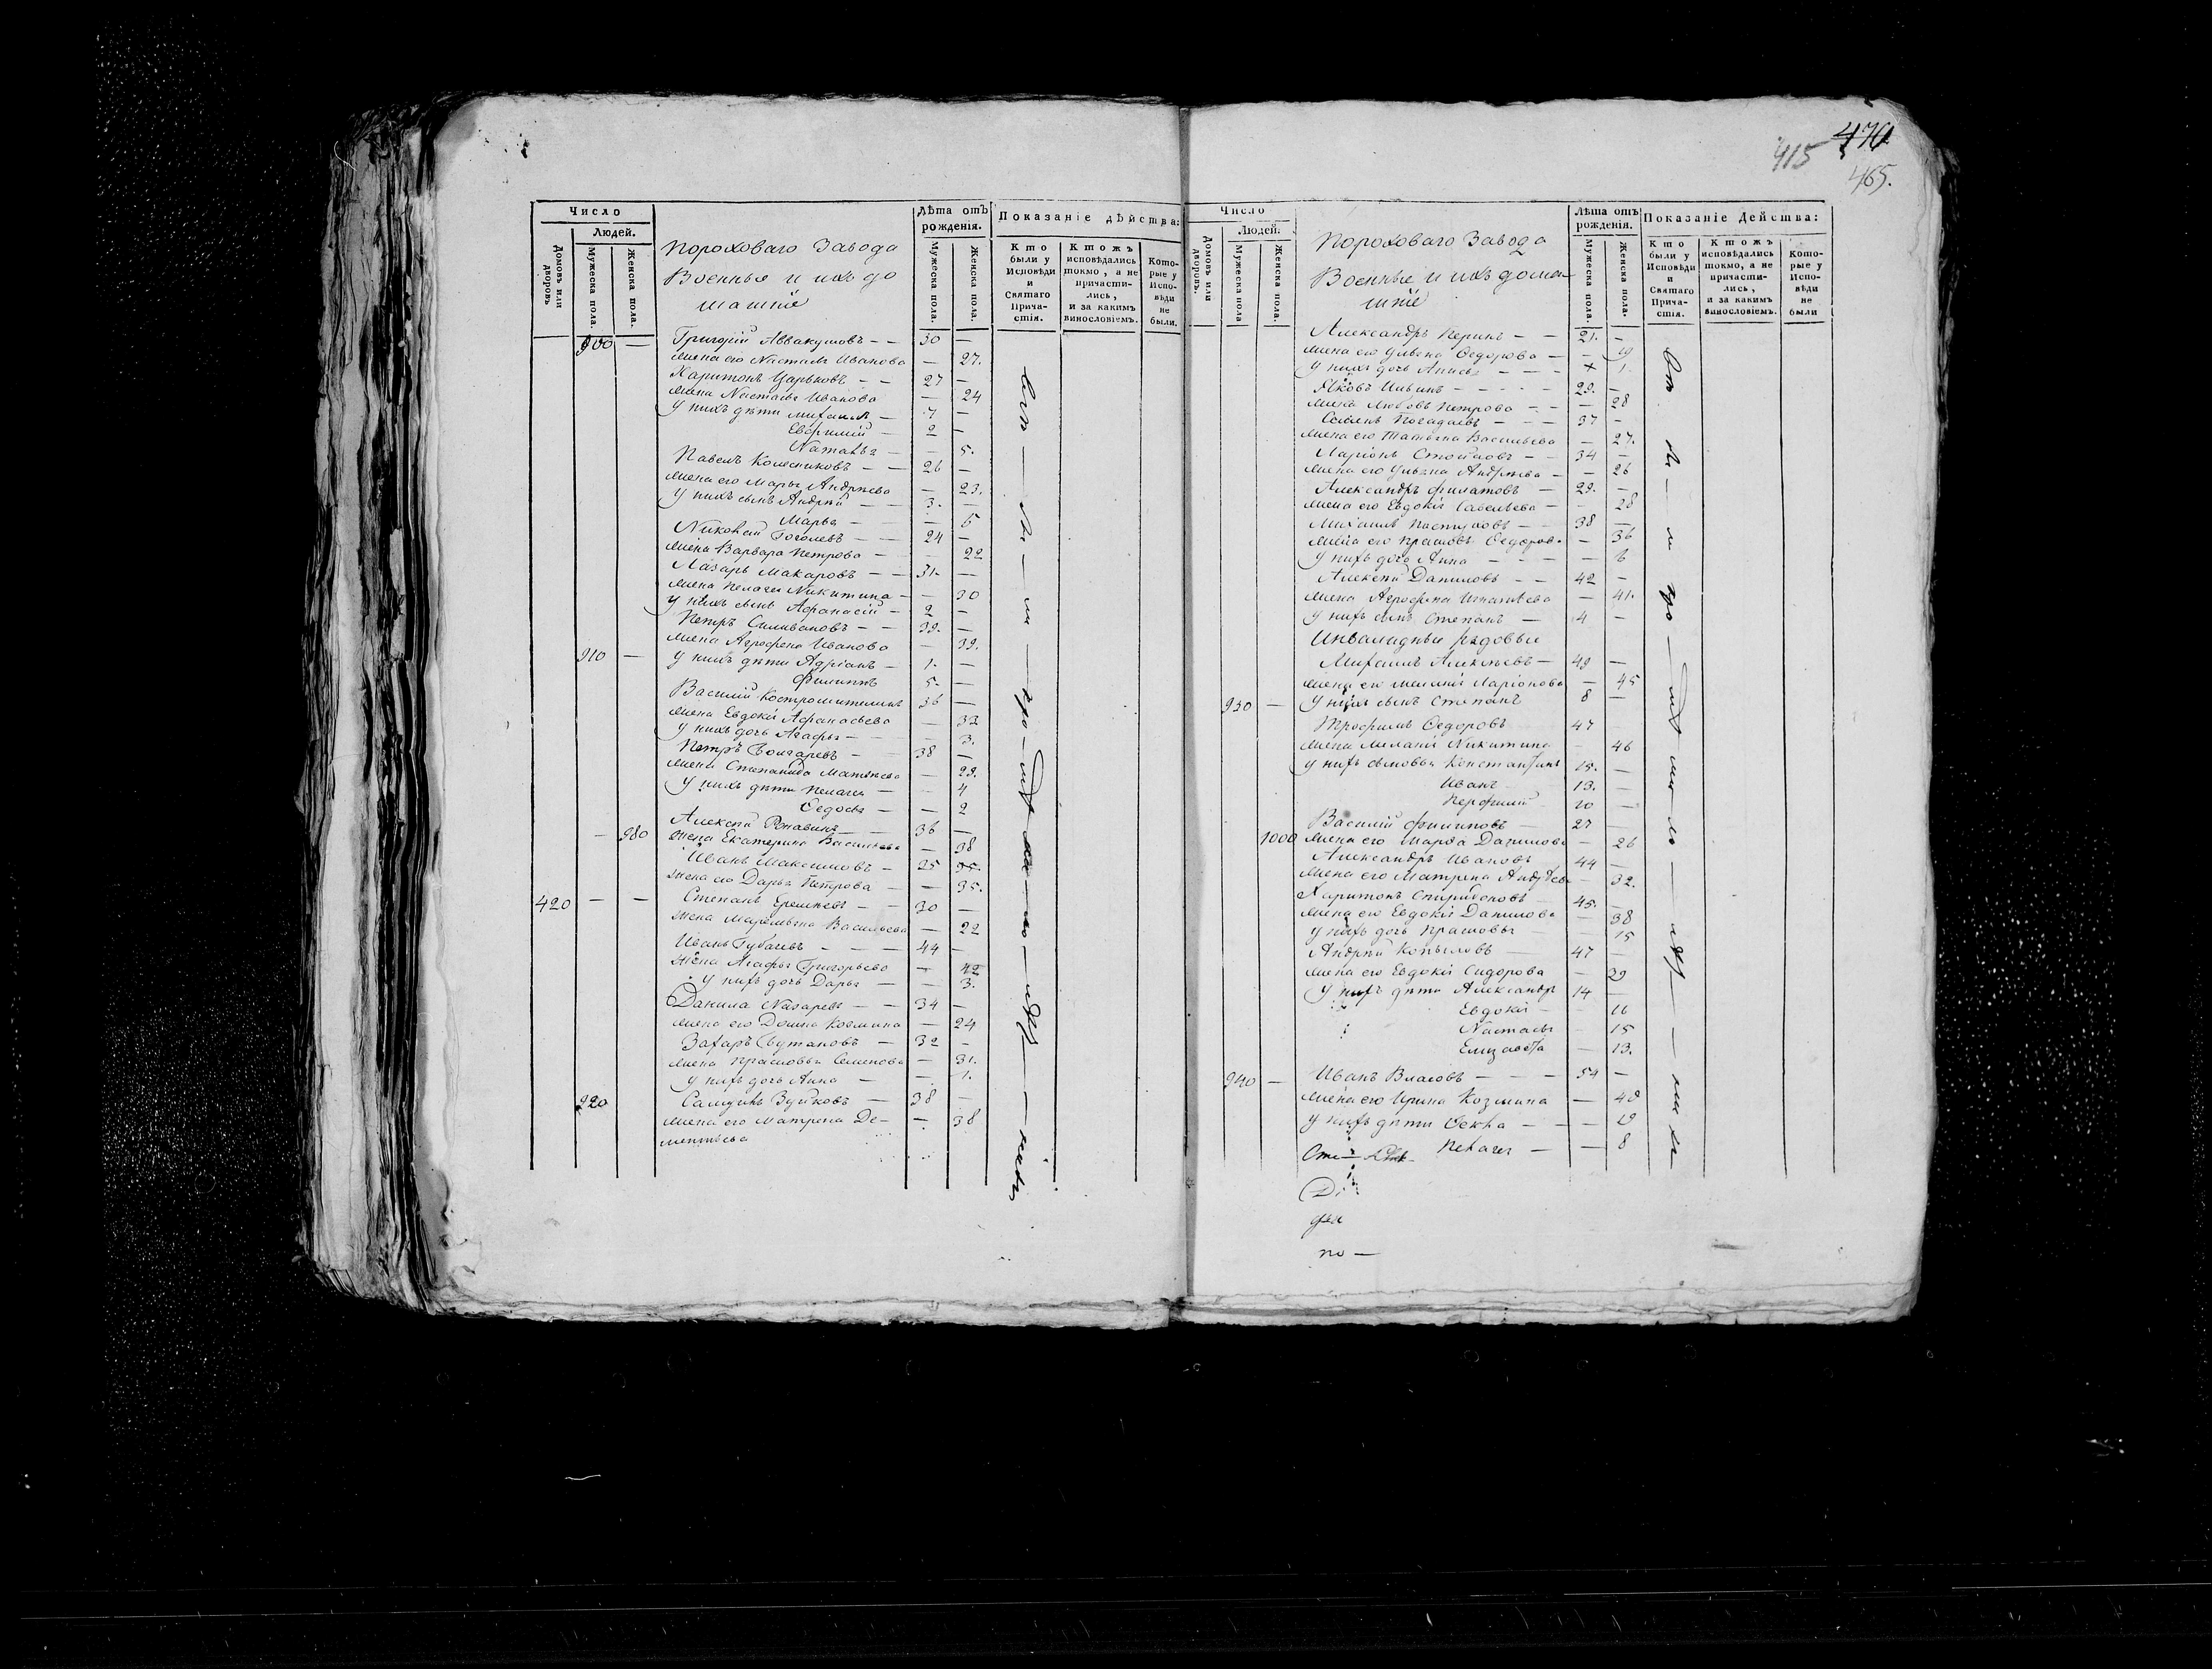 470
415
465.
Число
Людей.
Домовъ или дворовъ
Мужеска пола.
Женска пола.
Пороховаго Завода
Военные и ихъ до
машніе
Лѣта отъ рожденія.
Мужеска пола.
Женска пола.
Показаніе дѣйства:
Кто были у Исповѣди и Святаго Причастія.
Ктожъ исповѣдались токмо, а не причастились, и за какимъ винословіемъ.
Которые у Исповѣди не были.
900 — Григорій Аввакумовъ — — 30 —
жена его Настасья Иванова — 27.
Харитонъ Царьковъ — — 27 —
жена Настасья Иванова — 24
у нихъ дѣти Михаилъ — 7 —
Евфимій — 2 —
Наталья — — 5.
Павелъ Колесниковъ — — 26 —
жена его Марья Андрѣева — 23.
у нихъ сынъ Андрей — — 3. —
Марья — — 5
Николай Гоголевъ — — 24 —
жена Варвара Петрова — — 22
Лазарь Макаровъ — — 31. —
жена Пелагея Никитина — — 30
у нихъ сынъ Афанасій — 2 —
Петръ Силивановъ — — 39. —
жена Агрофена Иванова — 39.
910 — у нихъ дѣти Адріанъ — 1. —
Филиппъ 5. —
Василій Костромитинъ 36 —
жена Евдокія Афанасьева — 33
у нихъ дочь Агафья — — — 3.
Петръ Болгаревъ — — 38 —
жена Степанида Матвѣева — 29.
у нихъ дѣти Пелагея — — 4
Федосья — — 2
Алексей — — 36 —
— 980 жена Екатерина Васильева — 38
Иванъ Максимовъ — 25 35.
жена его Дарья Петрова — — 35.
420 — — Степанъ Еремѣевъ — — 30 —
жена Маремьяна Васильева — 22
Иванъ Губаревъ — — — 44 —
жена Агафья Григорьева — 42
у нихъ дочь Дарья — — 3.
Данила Назаревъ — — 34 —
жена его Домна Козмина — 24
Захаръ — 32 —
жена Прасковья Семенова — 31.
у нихъ дочь Анна — — 1.
920 Самуилъ Зуйковъ — 38 —
жена его Матрена Де- — 38
ментьева
Число
Людей.
Домовъ или дворовъ.
Мужеска пола
Женска пола.
Пороховаго Завода
Военные и ихъ дома-
шніе
Лѣта отъ рожденія.
Мужеска пола.
Женска пола.
Показаніе Действа:
Кто были у Исповѣди и Святаго Причастія.
Ктожъ исповѣдались токмо, а не причастились, и за какимъ винословіемъ.
Которые у Исповѣди не были
Александръ Перинъ — — 21. —
жена его Ульяна Федорова — — 19
у нихъ дочь — — — 1.
Яковъ Ильинъ — — — — 29. —
жена Любовь Петрова — — — 28
Семенъ Погадаевъ — — — 37 —
жена его Татьяна Васильева — 27.
Ларіонъ Стойловъ — — 34 —
жена его Ульяна Андрѣева — — 26
Александръ Филатовъ — 29. —
жена его Евдокія Савельева — — 28
Михаилъ Пастуховъ — — 38 —
жена его Прасковья Федоров. — 36
у нихъ дочь Анна — — — — 6
Алексей Даниловъ — — 42 —
жена Агрофена Игнатьева — 41.
у нихъ сынъ Степанъ — 4 —
Инвалидные рядовые
Михаилъ Алексѣевъ — 49 —
жена его Ларіонова — 45
930 — у нихъ сынъ Степанъ 8 —
Трофимъ Федоровъ 47
жена Меланія Никитина 46
у нихъ сыновья Константинъ 15. —
Иванъ 13. —
Перфилій 10 —
Василій Филиповъ — 27 —
1000 жена его Марфа Данилова — 26
Александръ Ивановъ 44 —
жена его Матрена Андрѣева 32.
Харитонъ Спиридоновъ — 45. —
жена его Евдокія Данилова — 38
у нихъ дочь Прасковья — — 15
Андрей Копыловъ — 47 —
жена его Евдокія Сидорова — 39
у нихъ дѣти Александръ 14 —
Евдокія — — 16
Настасья — 15
Елизавета — 13.
940 — Иванъ Власовъ — — — 54 —
жена его Ирина Козмина — 48
у нихъ дѣти Фекла — — — 19
Пелагея — — 8
по —